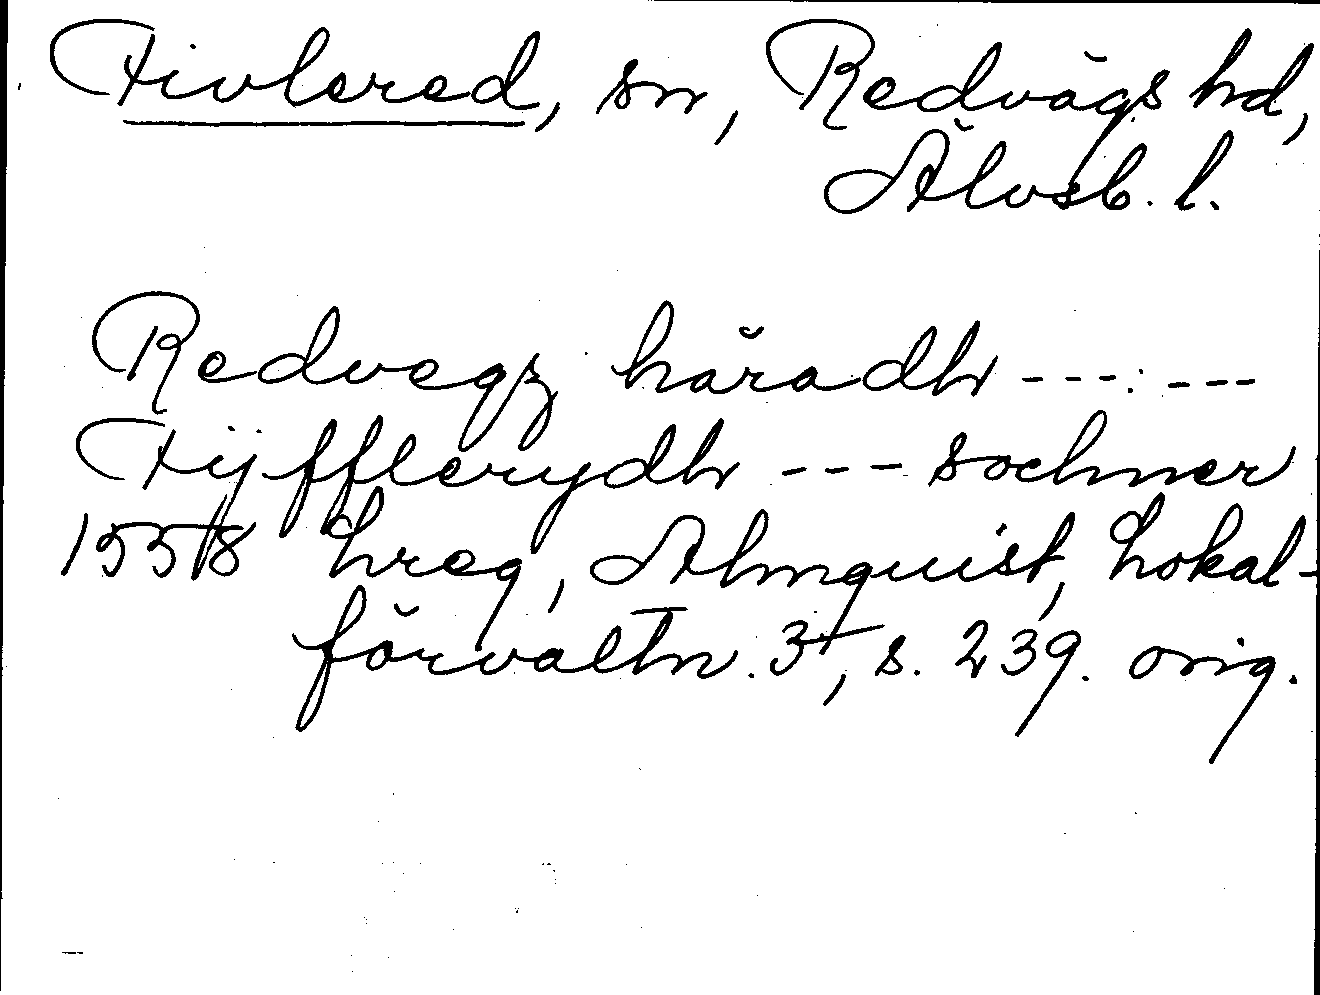 Tivlered, sn, Redvägs hd,
Älvsb. l.
Redvegz häradh ---.---
Tijfflerydh --- sochner
1558 Lreg, Almquist, Lokal-
förvaltn. 3, s. 239. orig.